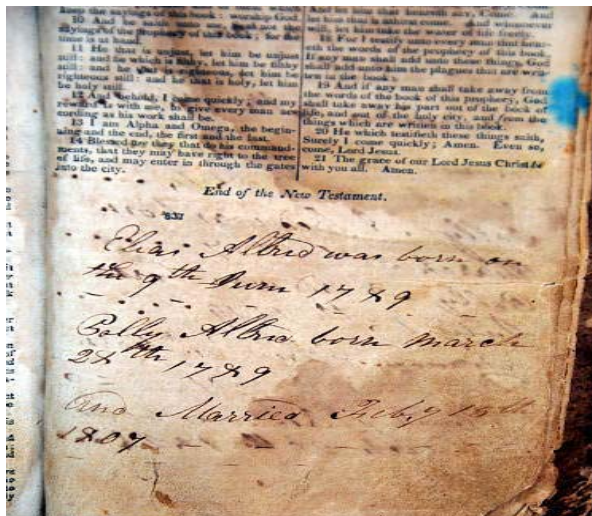 keep the sayings of this book: worship God.
10 And he saith unto me, Seal not the
sayings of the prophecy of this book; for the
time is at hand.
11 He that is unjust, let him be unjust
still: and he which is filthy, let him be filthy
still: and he that is righteous, let him be
righteous still: and he that is holy, let him
be holy still.
12 And behold, I come quickly; and my
reward is with me, to give every man ac-
cording as his work shall be.
13 I am Alpha and Omega, the begin-
ning and the end, the first and the last.
14 Blessed are they that do his command-
ments, that they may have right to the tree
of life, and may enter in through the gates
into the city.
And let him that heareth say, Come. And
let him that is athirst come. And whosoever
will, let him take the water of life freely.
18 For I testify unto every man that hear-
eth the words of the prophecy of this book,
If any man shall add unto these things, God
shall add unto him the plagues that are writ-
ten in this book:
19 And if any man shall take away from
the words of the book of this prophecy, God
shall take away his part out of the book of
life, and out of the holy city, and from the
things which are written in this book.
20 He which testifieth these things saith,
Surely I come quickly; Amen. Even so,
come, Lord Jesus.
21 The grace of our Lord Jesus Christ be
with you all. Amen.
End of the New Testament.
837
Elias Allred was born on
the 9th June 1789
Polly Allred born march
28th 1789
and Married Feby
1807